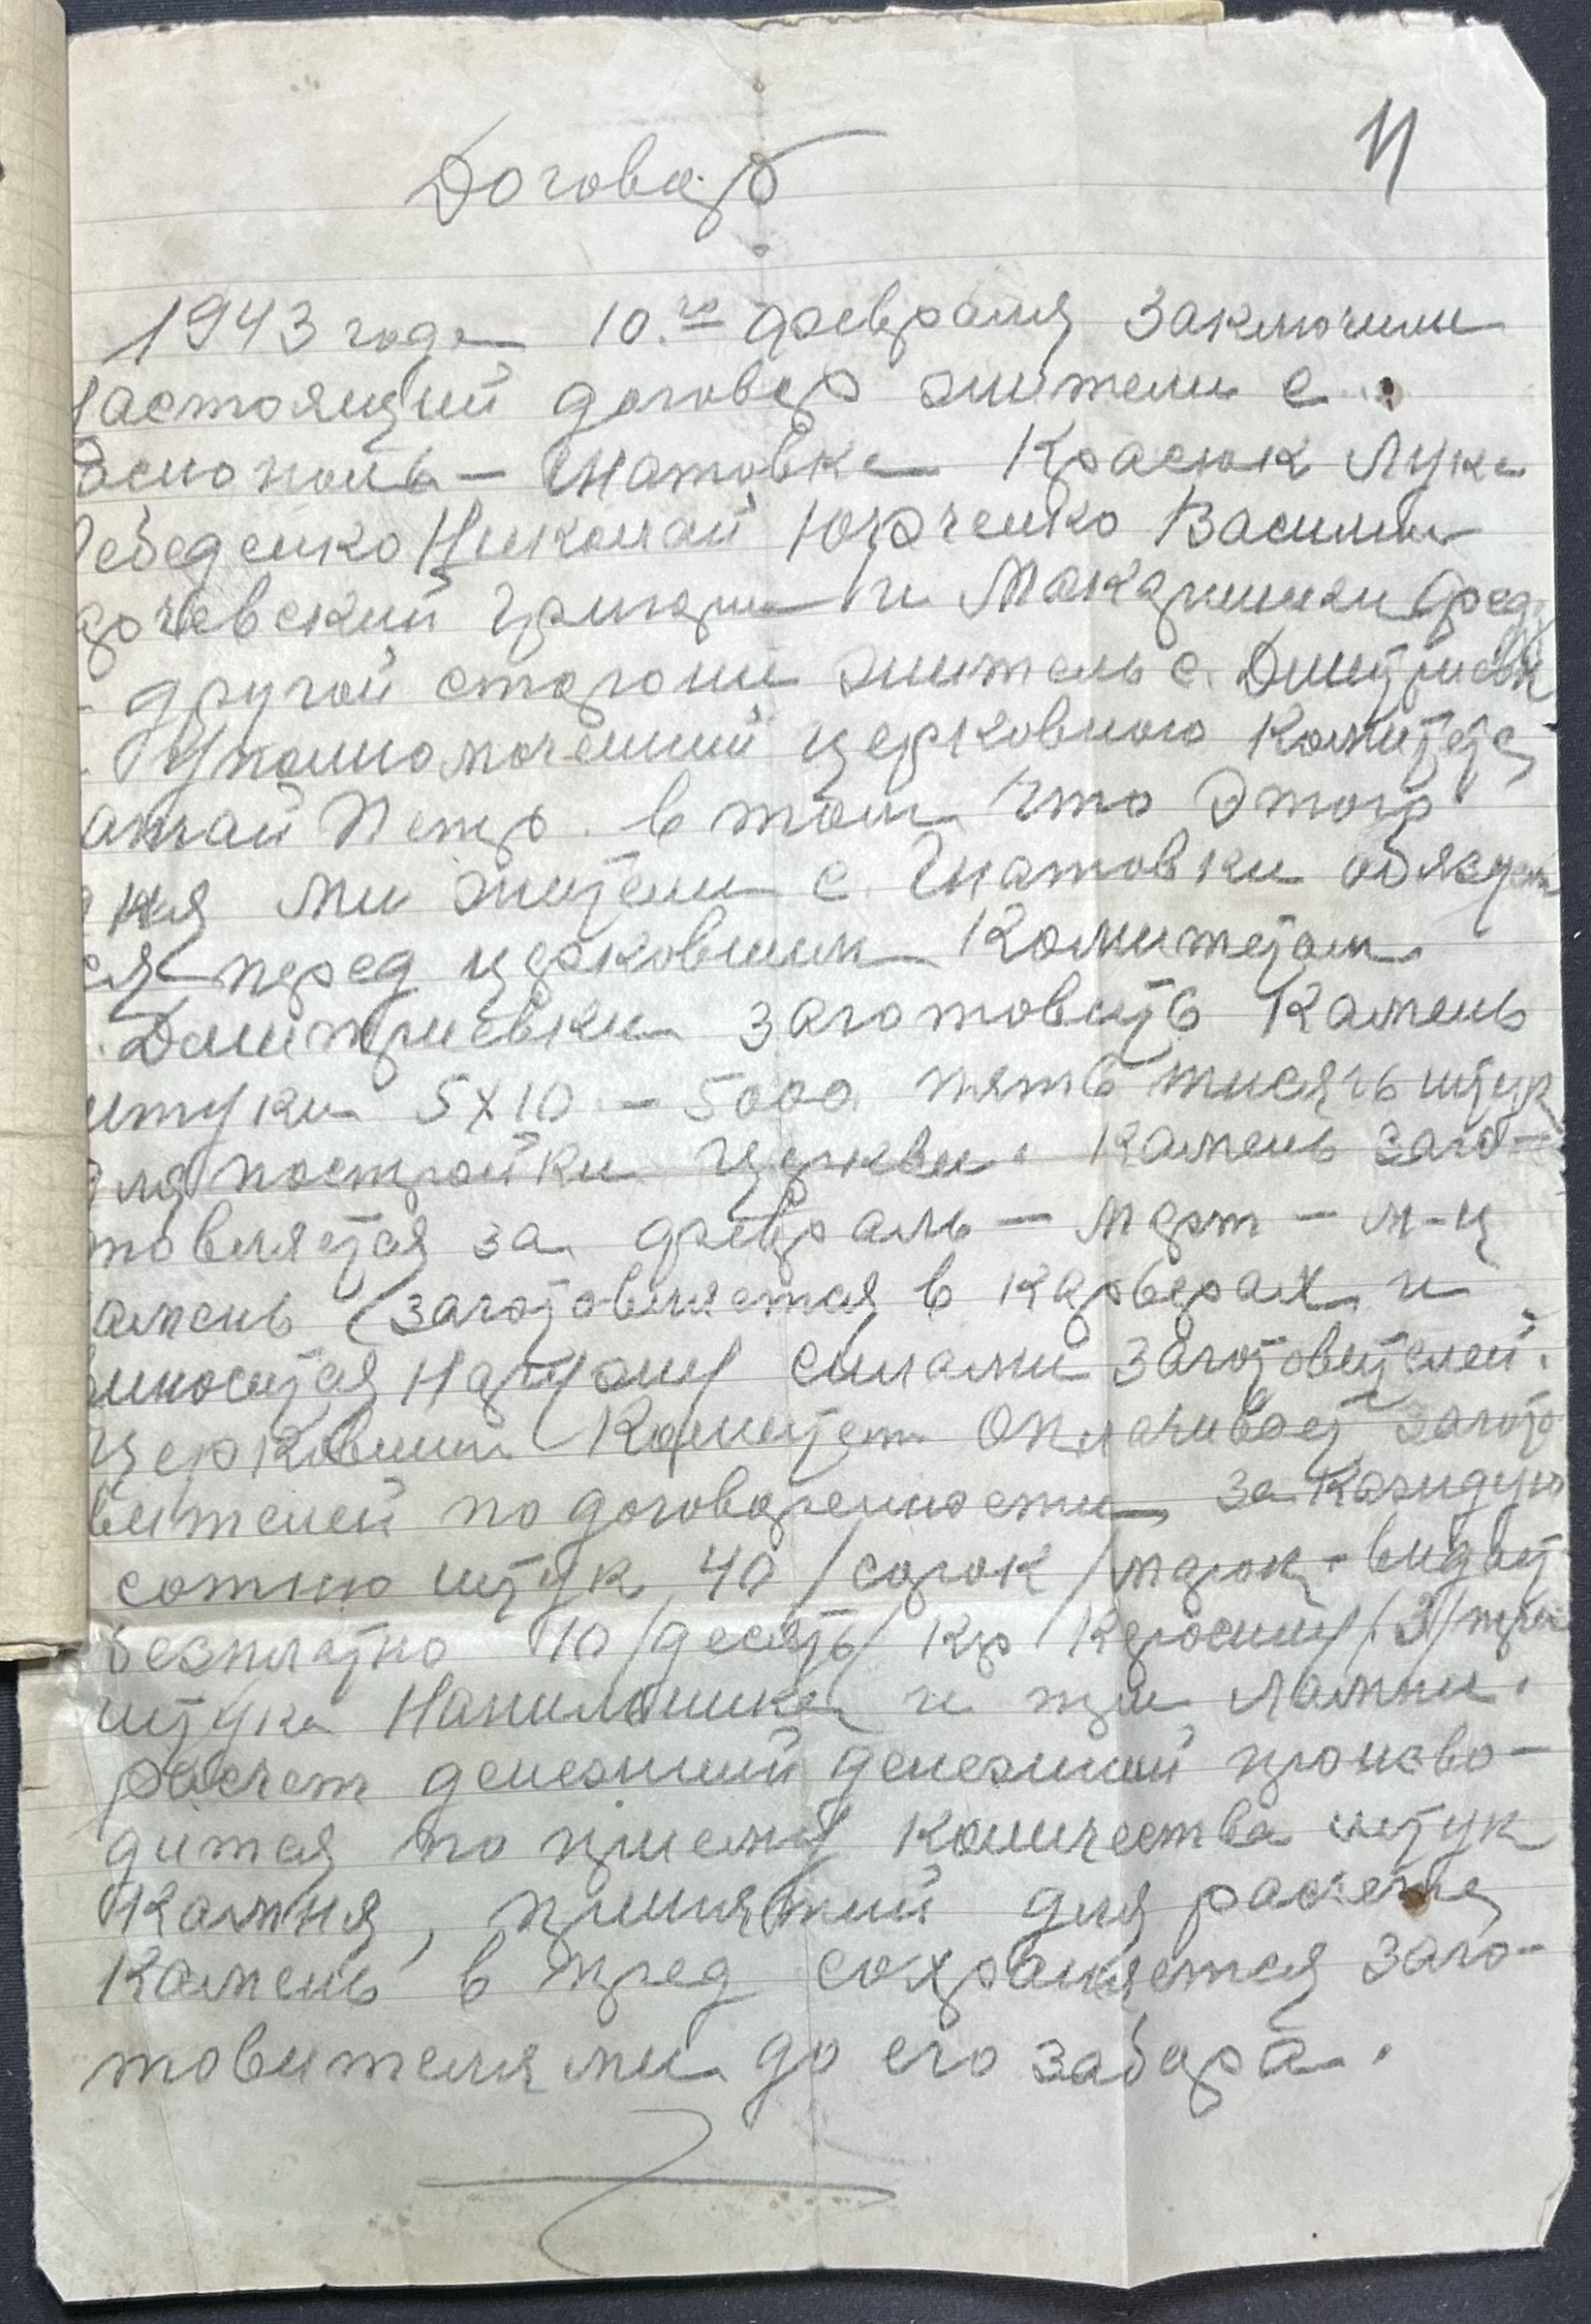 11
Договор
1943 года 10.го февраля Заключили
настоящий договор жители с.
Гнатовка Красюк Лука
Лебеденко Николай Юрченко Василий
Григорий и
другой сторони житель с. Дмитриевк
Уполномоченний церковного Комитета
Петр. в том что Этого
дня ми жители с. Гнатовки обязуем
ся перед церковним Комитетом
Дмитриевки заготовить Камень
штуки 5х10 – 5000 пять тисячь штук
для постройки Церкви. Камень заго-
товляется за февраль – март – м-ц
Камень заготовляется в Карьерах и
виносится наружу силами Заготовителей.
Церковний Комитет Оплачивает загото
вителей по договоренности за Каждую
сотню штук 40 /сорок/ марок. видает
безплатно 10 /десять/ кр Керосину /3/ три
штука Напильника и три лампи.
расчет денежний денежний произво-
дится по приему количества штук
Камня, принятий для расчета
Камень в пред сохраняется заго-
товителями до его забора.